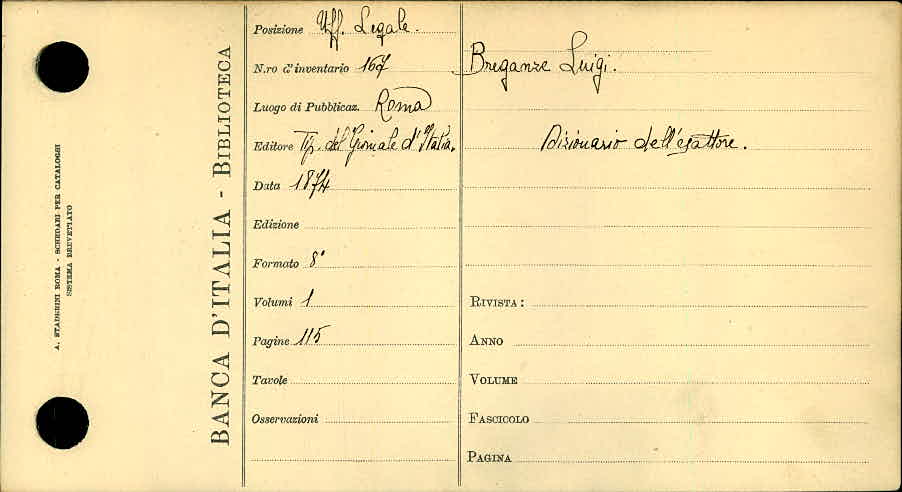 A. STADERINI ROMA - SCHEDARI PER CATALOGHI
SISTEMA BREVETTATO
BANCA D'ITALIA - BIBLIOTECA
Posizione Uff. Legale.
N.ro d'inventario 167
Luogo di Pubblicaz. Roma
Editore Tip. del Giornale d'Italia.
Data 1874
Edizione
Formato 8°
Volumi 1
Pagine 115
Tavole
Osservazioni
Breganze Luigi.
Dizionario dell'esattore.
RIVISTA:
ANNO
VOLUME
FASCICOLO
PAGINA